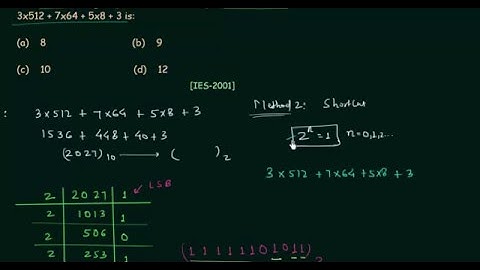 3x512 + 7x64 + 5x8 + 3 is:
(a) 8 (b) 9
(c) 10 (d) 12
[IES-2001]
: 3×512 + 7×64 + 5×8 + 3
1536 + 448 + 40 + 3
(2027)10 → ( )2
Method 2: Shortcut
2^n = 1 n=0,1,2...
3×512 + 7×64 + 5×8 + 3
2 2027 1 LSB
2 1013 1
2 506 0
2 253 1
(11111101011)2